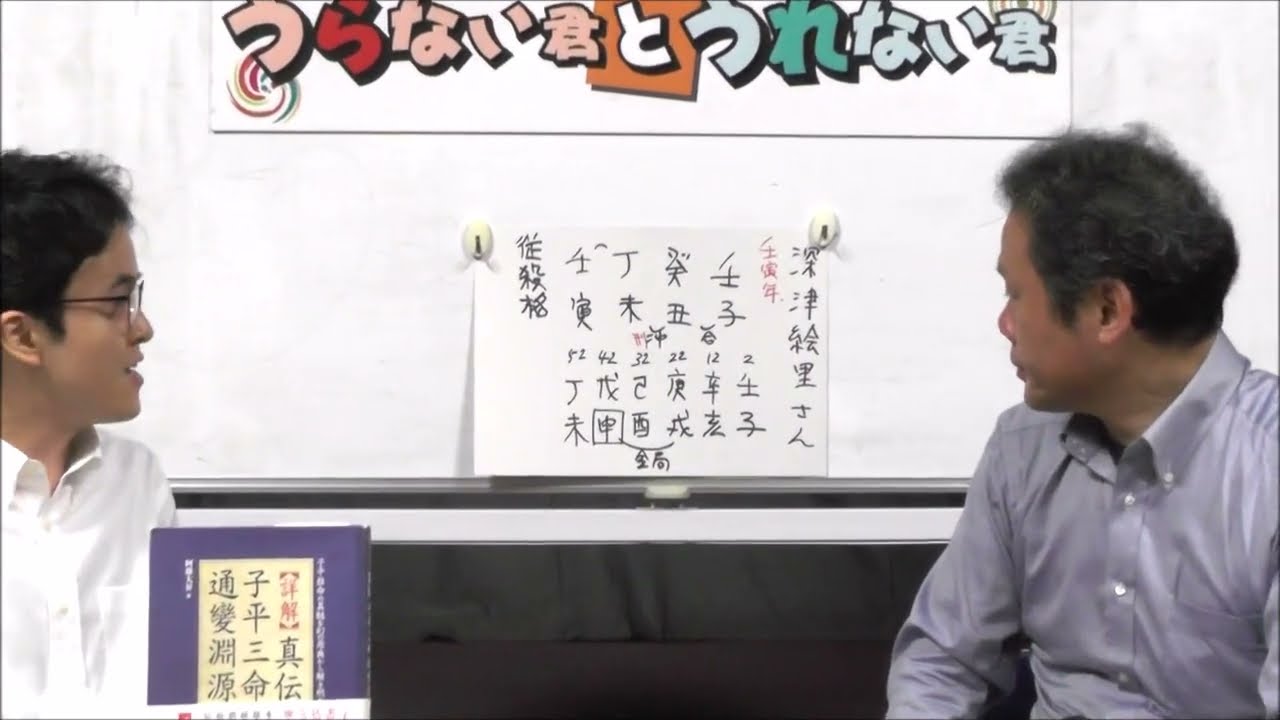 うらない君とうれない君
深津絵里さん
壬寅年
壬 丁 癸 壬
寅 未 丑 子
刑 冲 合
52 42 32 22 12 2
丁 戊 己 庚 辛 壬
未 申 酉 戌 亥 子
金局
従殺格
【詳解】真伝
子平三命
通變淵源